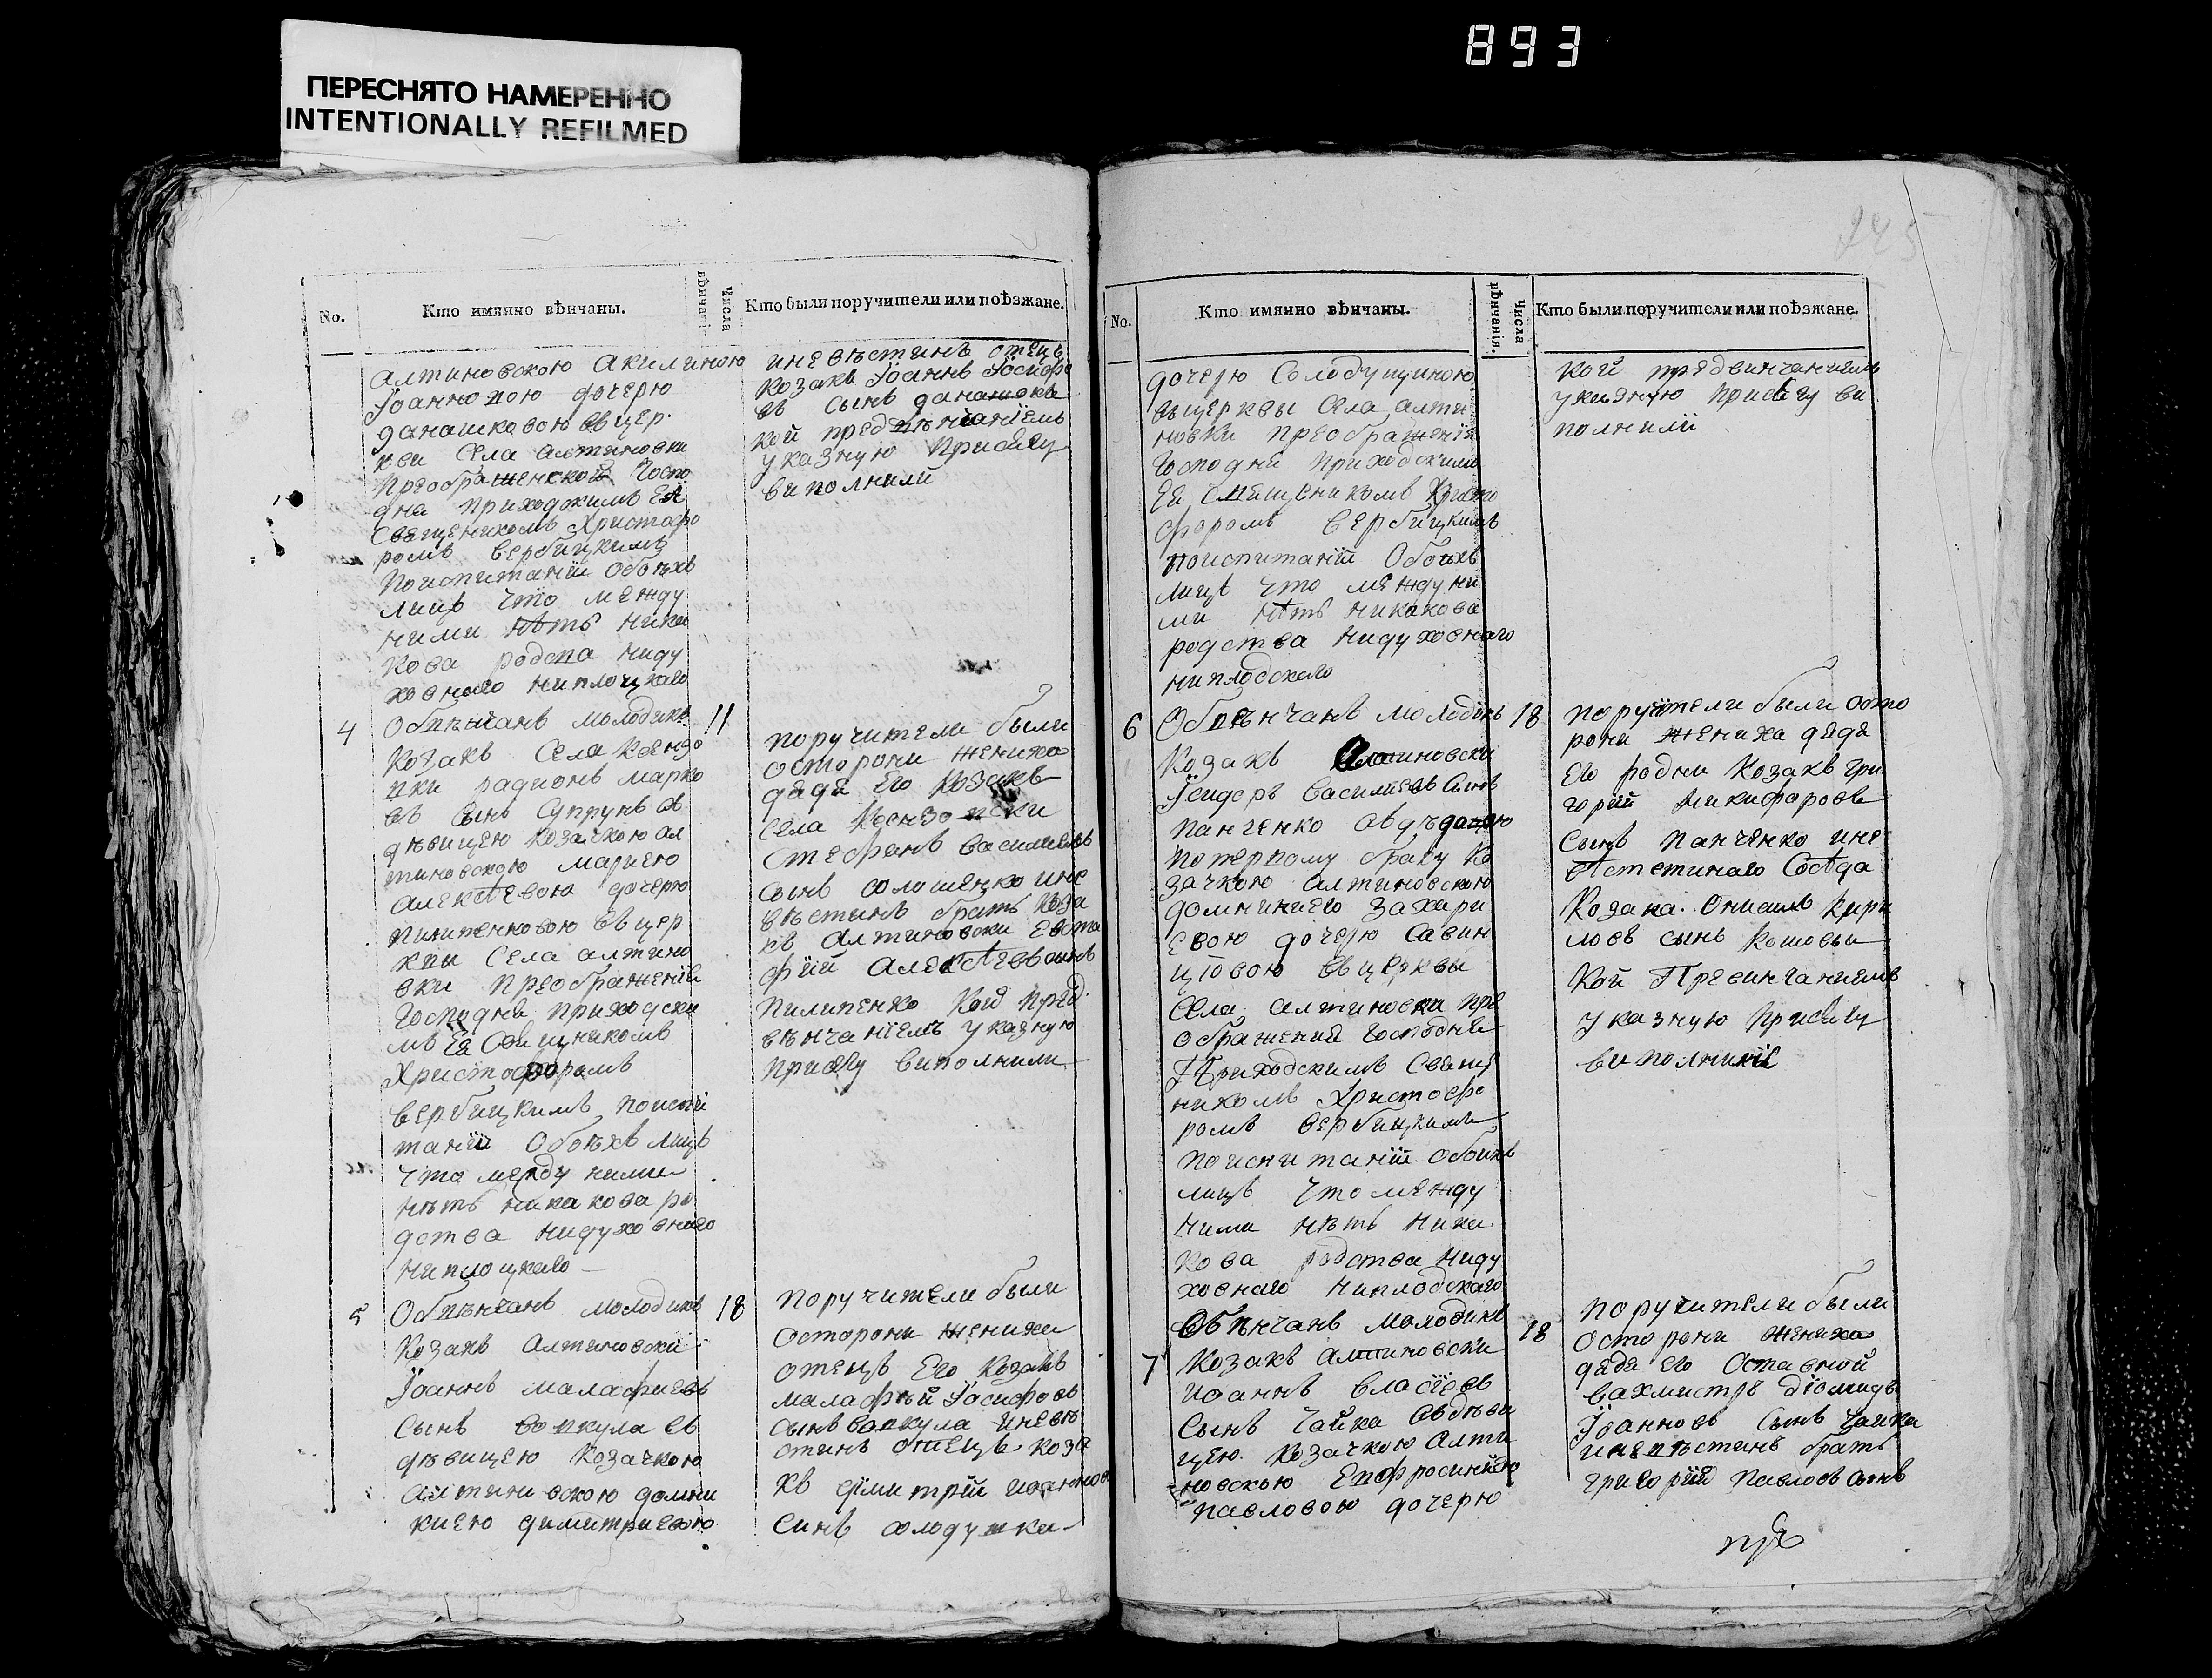 893
ПЕРЕСНЯТО НАМЕРЕННО
INTENTIONALLY REFILMED
245
No.
Кто имянно вѣнчаны.
Числа вѣнчанія.
Кто были поручители или поѣзжане.
алтиновскою Акилиною
Іоанновою дочерю
данашковою въ цер
кви Села алтиновки
преображенской Госпо
дня приходскимъ Ея
Священикомъ Христофо
ромъ вербицкимъ
по испитаніи обоихъ
лицъ что между
ними нѣтъ ника
кова родсва ниду
ховнаго ниплоцкаго
и невѣстинъ отецъ
козакъ Іоаннъ Іосифо
въ сынъ данашокъ
кой предвѣнчаніемъ
указную присягу
виполнили
4
Обвѣнчанъ молодикъ
11
Козакъ Села Ксендзо
вки радионъ марко
въ сынъ Супрунъ зъ
дѣвицею козачкою ал
тиновскою мариею
алексѣевою дочерю
пилипенковою въ цер
кви Села алтино
вки преображенія
Господня приходски
мъ Ея Священикомъ
Христофоромъ
вербицкимъ по испи
таніи обоихъ лицъ
что между ними
нѣтъ никакова ро
дства нидуховнаго
ниплоцкаго
поручители были
осторони жениха
дядя Его козакъ
села Ксендзовски
Стефанъ василиевъ
сынъ солошенко и не
вѣстинъ братъ коза
къ алтиновски Евста
фій алексѣевъ сынъ
пилипенко кой пред
вѣнчаніемъ указную
присягу виполнили
5
Обвѣнчанъ молодикъ
18
Козакъ алтиновскій
Іоаннъ малафиевъ
Сынъ вовкула съ
дѣвицею козачкою
алтиновскою домни
киею димитриевою
поручители были
осторони жениха
отецъ Его козакъ
малафѣй Іосифовъ
сынъ вовкула и невѣ
стинъ отецъ коза
къ димитрій иоанновъ
синъ солодушка
No.
Кто имянно вѣнчаны.
Числа вѣнчанія.
Кто были поручители или поѣзжане.
дочерю Солодущиною
въ церквы Села алти
новки преображенія
Господня приходскимъ
Ея Священикомъ Христо
форомъ вербицкимъ
по испитаніи обоихъ
лицъ что между ни
ми нѣтъ никакова
родства нидуховнаго
ниплодскаго
кой предвинчаниемъ
указную присягу ви
полнили
6
Обвѣнчанъ молодикъ
18
Козакъ алтиновски
Ісидоръ василиевъ сынъ
панченко
по первому браку ко
зачкою алтиновскою
домникиею захари
евою дочерю савин
цовою въ церквы
Села алтиновки пре
ображения Господня
Приходскимъ Свящ
никомъ Христофо
ромъ вербицкимъ
по испитаніи обоихъ
лицъ что между
ними нѣтъ ника
кова родства ниду
ховнаго ниплодскаго
поручители были осто
рони жениха дядя
его родни козакъ гри
горій никифаровъ
сынъ панченко и не
вѣстинаго сосѣда
козака кири
ловъ сынъ
кой Превинчаниемъ
указную присягу
виполнили
7
Обвѣнчанъ молодикъ
18
Козакъ алтиновски
иоаннъ власіевъ
Сынъ Чайка съ дѣви
цею козачкою алти
новскою Евфросиниею
павловою дочерю
поручители были
осторони жениха
дядя его Оставной
вахмистръ діомидъ
Іоанновъ сынъ Чайка
и невѣстинъ братъ
григорій павловъ сынъ